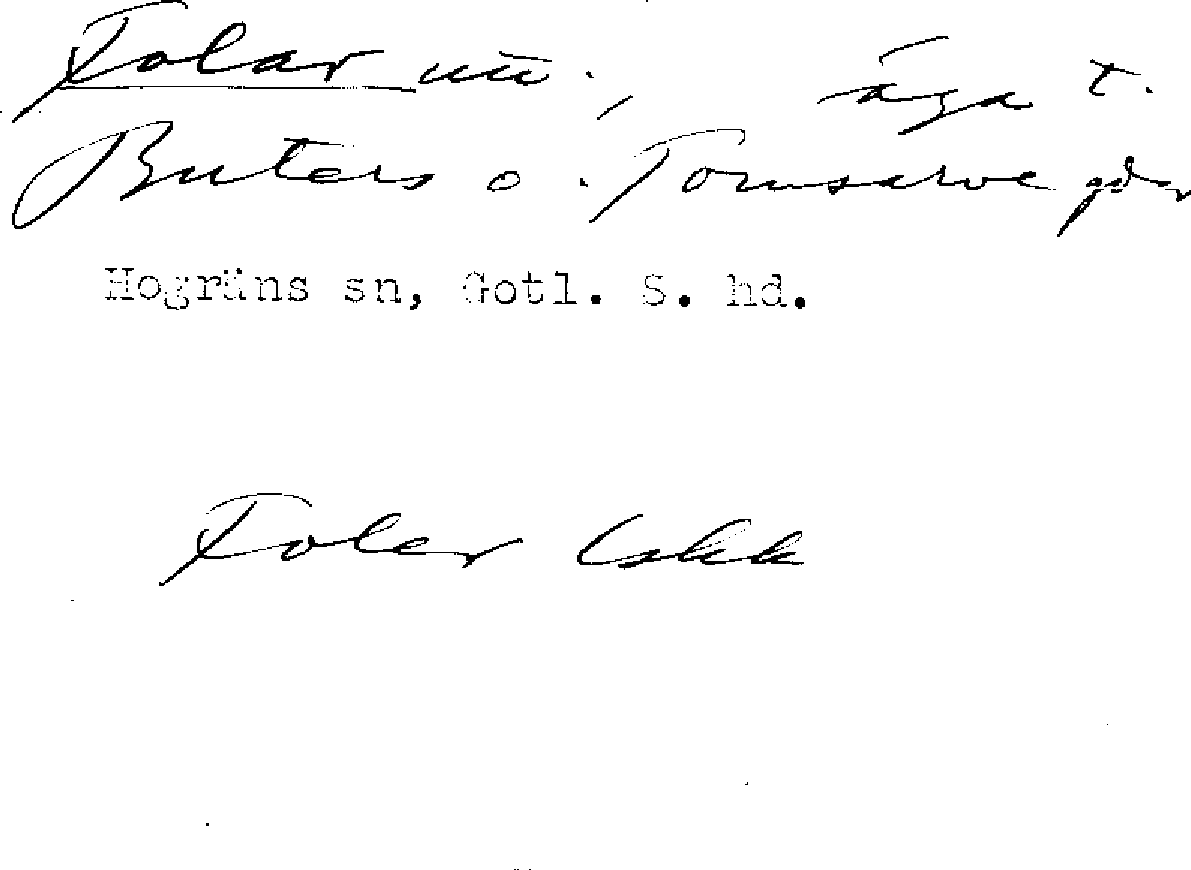 Folar nu., äga t.
Buters o. Tomsarve gdr
Hogräns sn, Gotl. S. hd.
Foler Lskk